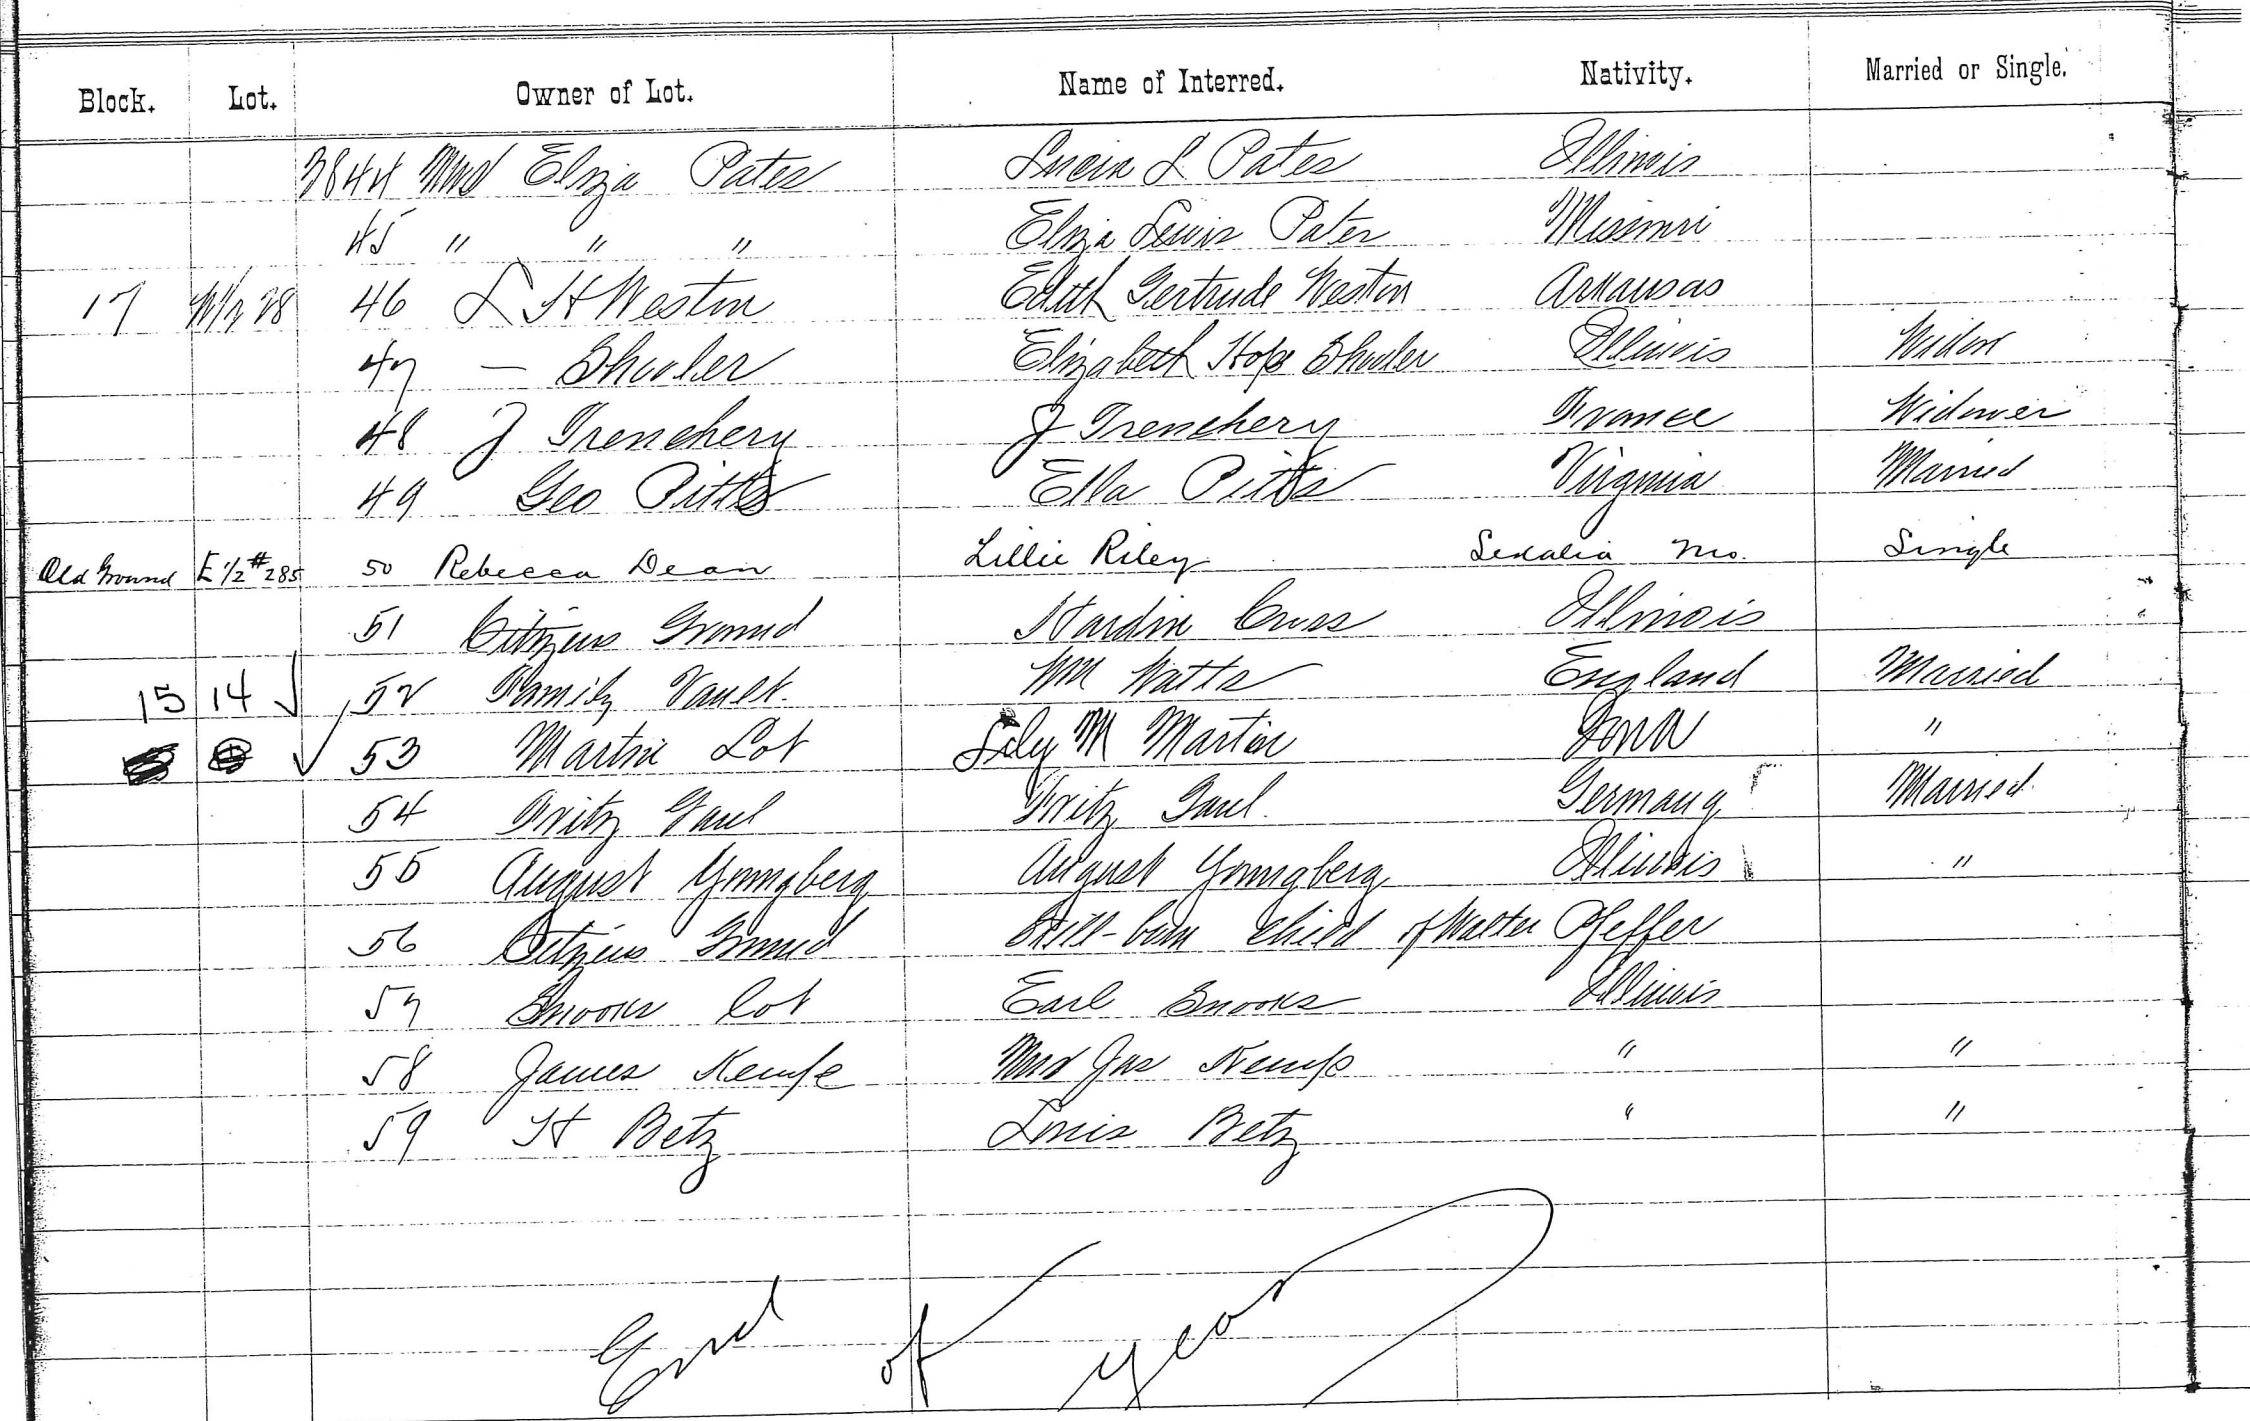 Block. Lot. Owner of Lot. Name of Interred. Nativity. Married or Single.
3844 Mrs Eliza Pates Lucia L Pates Illinois
45 " " " Eliza Lewis Pates Missouri
17 W 1/2 28 46 L H Weston Edith Gertrude Weston Arkansas
47 — Shooler Elizabeth Hope Shooler Illinois Widow
48 J Trenchery J Trenchery France Widower
49 Geo Pitts Ella Pitts Virginia Married
Old Ground E 1/2 #285 50 Rebecca Dean Lillie Riley Sedalia Mo. Single
51 Citizens Ground Hardin Cross Illinois
15 14 ✓ 52 Family Vault. Wm Watts England Married
✓ 53 Martin Lot Lily M Martin Iowa "
54 Fritz Gaul Fritz Gaul. Germany Married
55 August Youngberg August Youngberg Illinois "
56 Citizens Ground Still-born child of Walter Pfeffer
57 Snooks Lot Earl Snooks Illinois
58 James Kempe Mrs Jas Kemp " "
59 H Betz Louis Betz " "
End of year